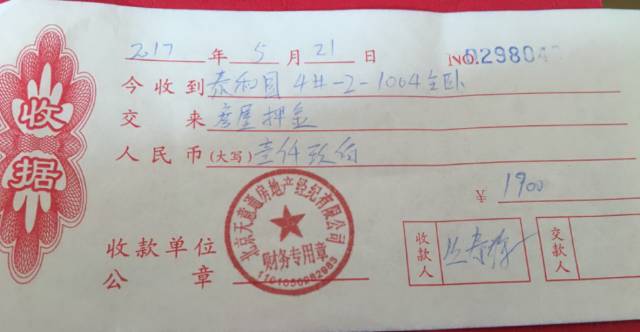 收据
2017 年 5 月 21 日 NO.029804
今收到 泰和园 4#-2-1004主卧
交来 房屋押金
人民币(大写) 壹仟玖佰
¥ 1900
收款单位
公章
北京天意通房地产经纪有限公司
财务专用章
收款人
交款人